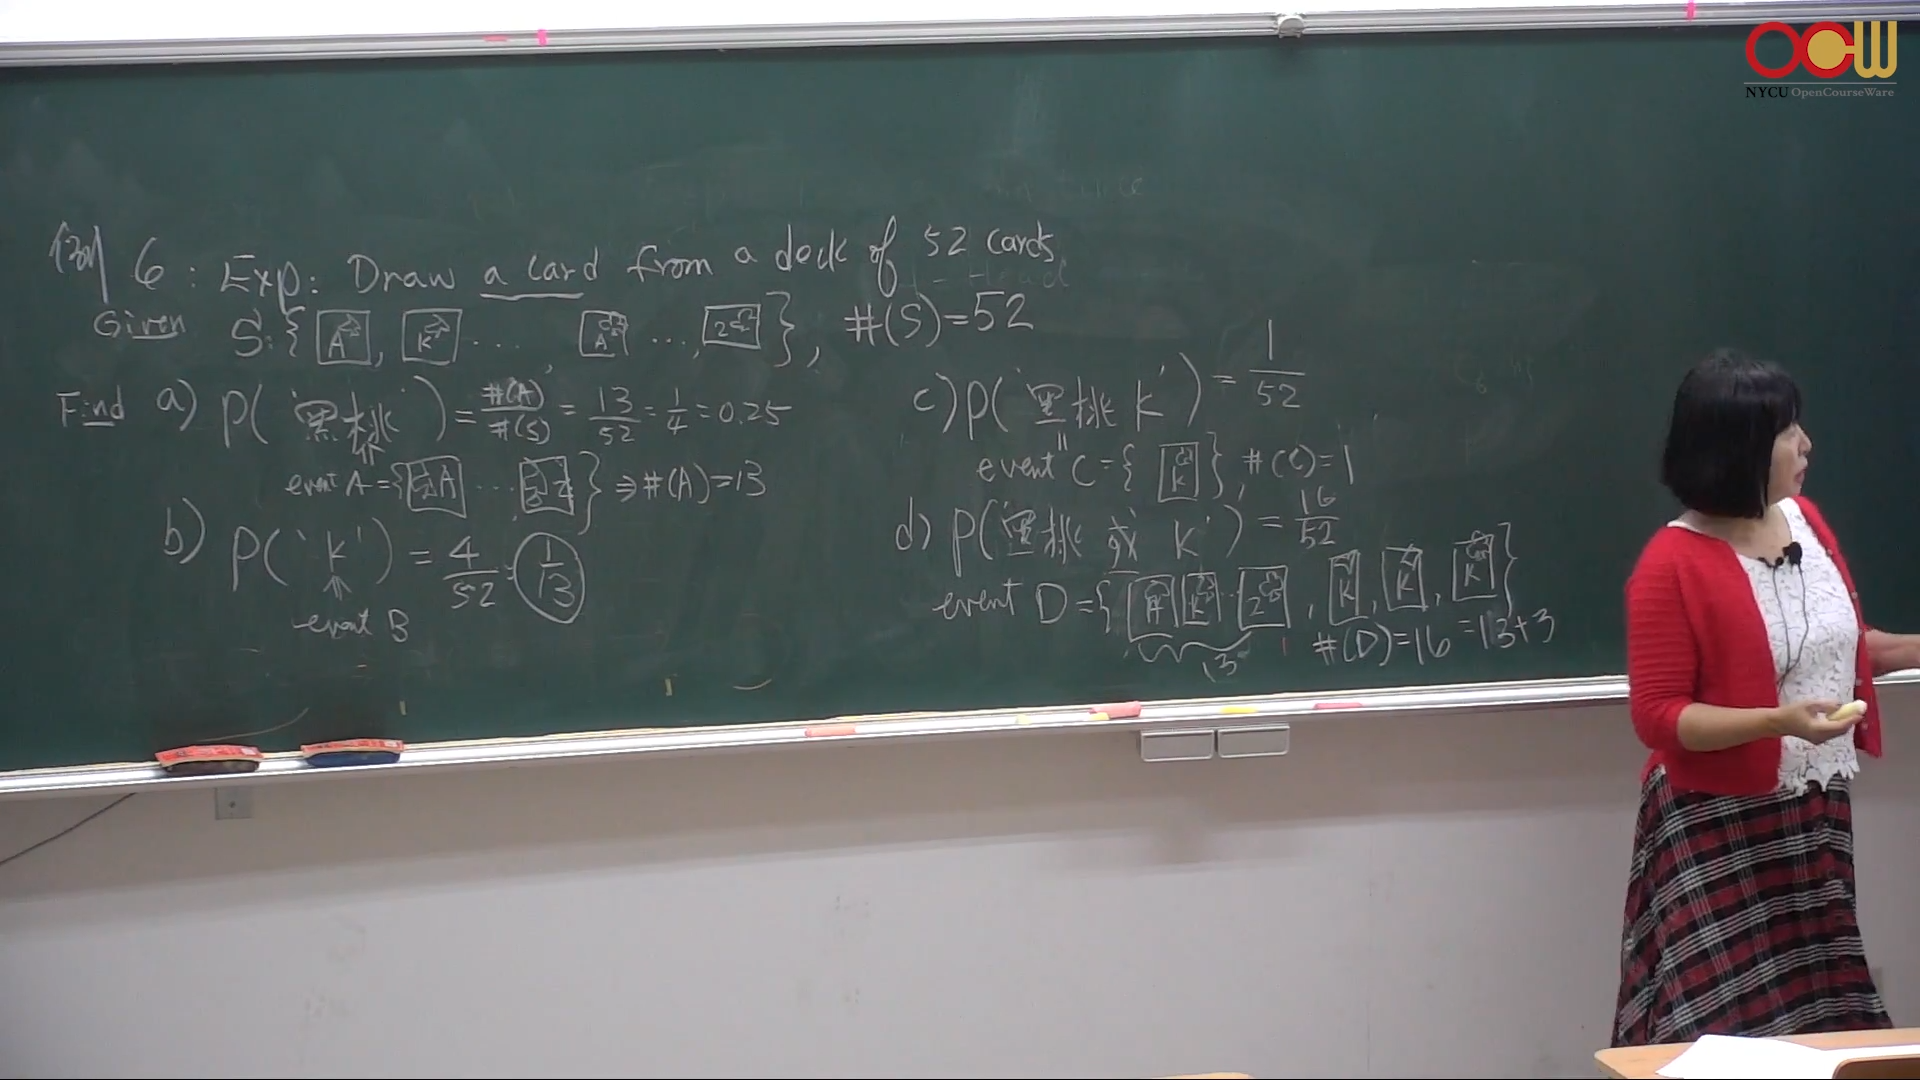 OCW
NYCU OpenCourseWare
例 6 : Exp: Draw a card from a deck of 52 cards
Given S: { A , K ... A ..., 2 } , #(S)=52
Find a) P('黑桃') = #(A)/#(S) = 13/52 = 1/4 = 0.25
event A = { A ... 2 } ⇒ #(A)=13
b) P('K') = 4/52 = 1/13
event B
c) P('黑桃 K') = 1/52
event C = { K }, #(C)=1
d) P('黑桃 或 K') = 16/52
event D = { A K ... 2 , K , K , K }
13 #(D)=16 =13+3